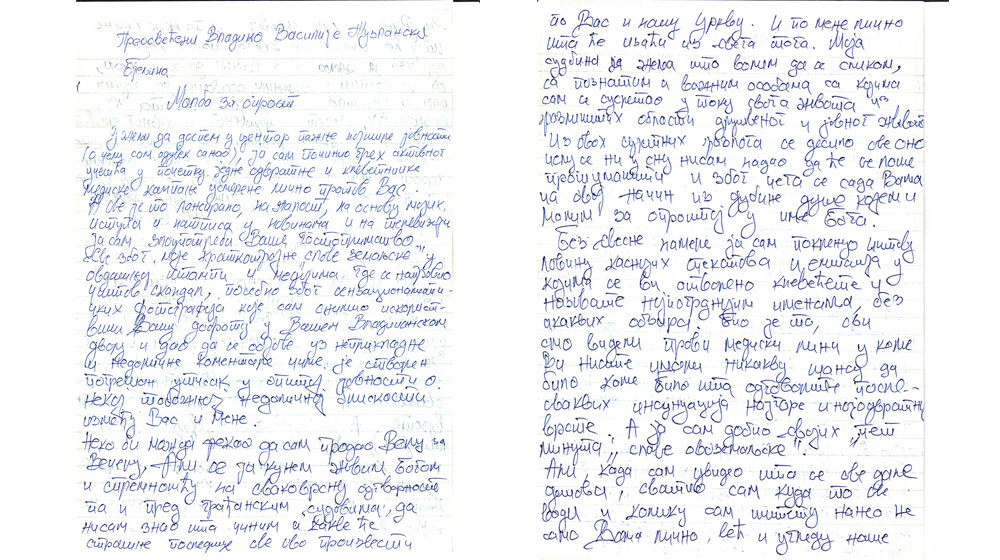 Преосвећени Владико Василије Тузлански
Бјељина
Молба за опрост
У жељи да доспем у центар пажње позније јавности
(о чему сам одувек сањао), ја сам починио грех активног
учешћа у почетку једне одвратне и клеветничке
медијске кампање усмерене лично против Вас.
А све је то лансирано, на жалост, на основу мојих
иступа и натписа у новинама и на телевизији
Ја сам злоупотребио Ваше гостопримство
све због моје краткотрајне славе земаљске у
овдашњој штампи и медијима где се направио
читав скандал, посебно због сензационалисти-
чких фотографија које сам снимио искористи-
вши Вашу доброту у Вашем Владичанском
двору и дао да се објаве уз неприкладне
и недоличне коментаре чиме је створен
погрешан утисак у општој јавности о
некој тобожњој недоличној блискости
између Вас и мене.
Неко би можда рекао да сам продао веру за
вечеру, Али се закунем живим Богом
и спремношћу на сваковрсну одговорност
па и пред грађанским судовима, да
нисам знао шта чиним и какве ће
страшне последице све ово произвести
по Вас и нашу Цркву. И по мене лично
шта ће изаћи из света тога. Моја
судбина је жеља што волим да се сликам,
са познатим и важним особама са којима
сам се сусретао у току свога живота из
различитих области друштвеног и јавног живота
Из ових сујетних разлога се десило све оно
чему се ни у сну нисам надао да ће се лоше
протумачити и због чега се сада Вама
на овај начин из дубине душе кајем и
молим за опроштај у име Бога.
Без свесне намере ја сам покренуо читаву
лавину каснијих текстова и емисија у
којима се ви отворено клевећете и
називате најпогрднијим именима, без
икаквих обзира. Био је то, сви
смо видели прави медијски линч у коме
Ви нисте имали никакву шансу да
било коме било шта одговорите после
сваквих инсинуација најгоре и најодвратније
врсте. А ја сам добио својих „пет
минута „славе овоземаљске".
Али, када сам увидео шта се све даље
дешава, схватио сам куда то све
води и колику сам штету нанео не
само Вама лично, већ и угледу наше